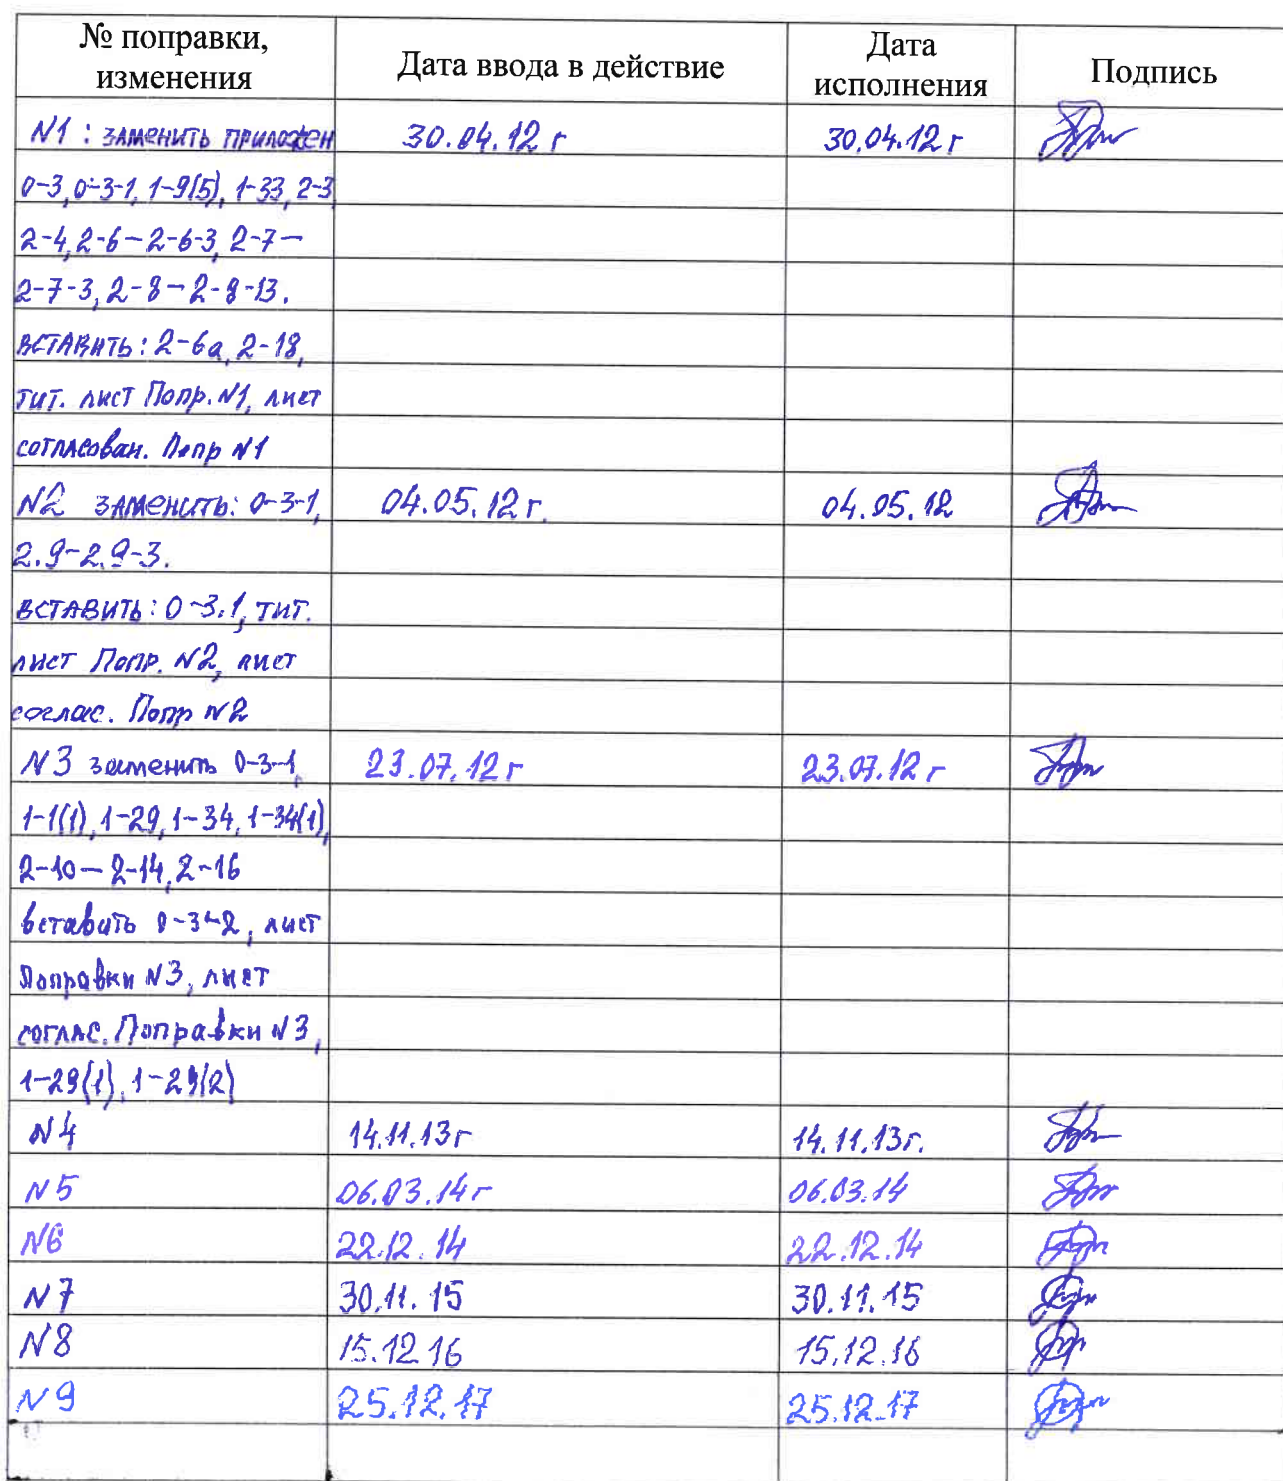 № поправки, изменения Дата ввода в действие Дата исполнения Подпись
N1 : заменить приложен 30.04.12 г 30.04.12 г
0-3, 0-3-1, 1-9(5), 1-33, 2-3
2-4, 2-6 – 2-6-3, 2-7 –
2-7-3, 2-8 – 2-8-13.
вставить: 2-6а, 2-18,
тит. лист Попр. N1, лист
согласован. Попр N1
N2 заменить: 0-3-1, 04.05.12 г. 04.05.12
2.9-2.9-3.
вставить: 0-3.1, тит.
лист Попр. N2, лист
соглас. Попр N2
N3 заменить 0-3-1, 23.07.12 г 23.07.12 г
1-1(1), 1-29, 1-34, 1-34(1),
2-10 – 2-14, 2-16
вставить 0-3-2, лист
Поправки N3, лист
соглас. Поправки N3,
1-29(1), 1-29(2)
N4 14.11.13г 14.11.13г.
N5 06.03.14г 06.03.14
N6 22.12.14 22.12.14
N7 30.11.15 30.11.15
N8 15.12.16 15.12.16
N9 25.12.17 25.12.17